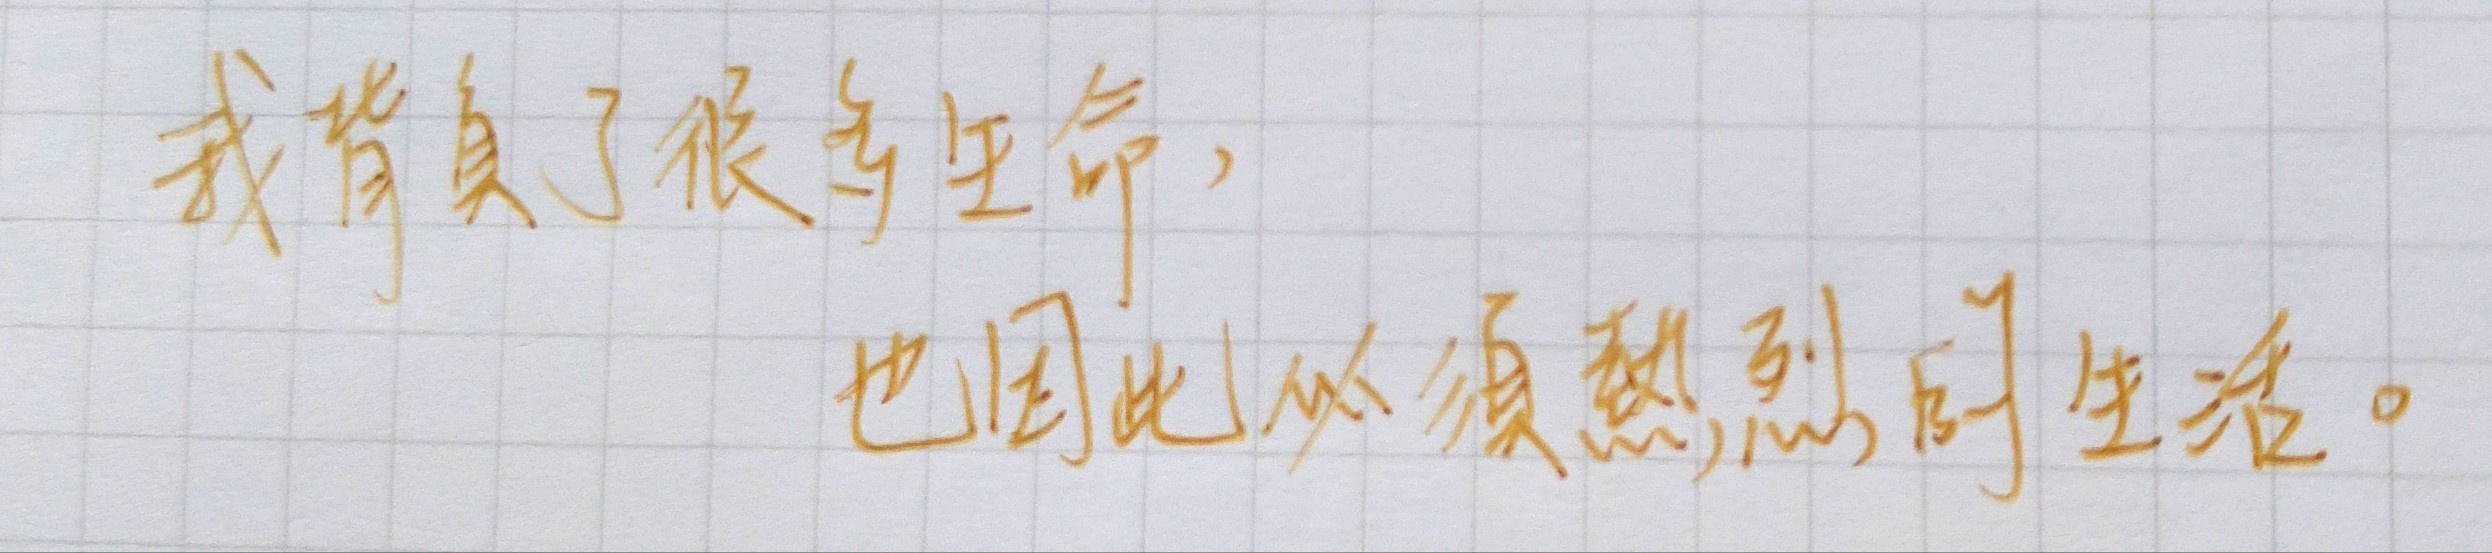 我背負了很多生命，
也因此必須熱烈的生活。